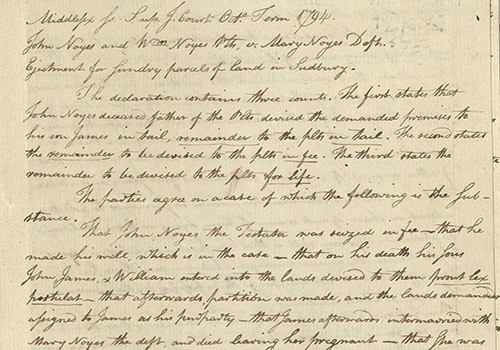 Middlesex ss. Sup. J. Court Octr. Term 1794.
John Noyes and Wm Noyes Plts, v. Mary Noyes Deft.
Ejectment for sundry parcels of land in Sudbury.
The declaration contains three counts. The first states that
John Noyes deceased father of the Plts devised the demanded premises to
his son James in tail, remainder to the plts in tail. The second states
the remainder to be devised to the plts in fee. The third states the
remainder to be devised to the plts for life.
The parties agree on a case of which the following is the Sub-
stance.
That John Noyes the Testator was seized in fee – that he
made his will, which is in the case – that on his death his sons
John James, & William entered into the lands devised to them prout lex
postulat – that afterwards partition was made, and the lands demanded
assigned to James as his purparty – that James afterwards intermarried with
Mary Noyes the deft, and died leaving her pregnant – that she was